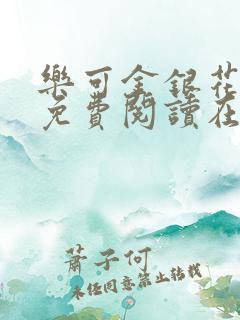 樂可金銀花
免費閱讀在
蕭子何
未經同意禁止轉載